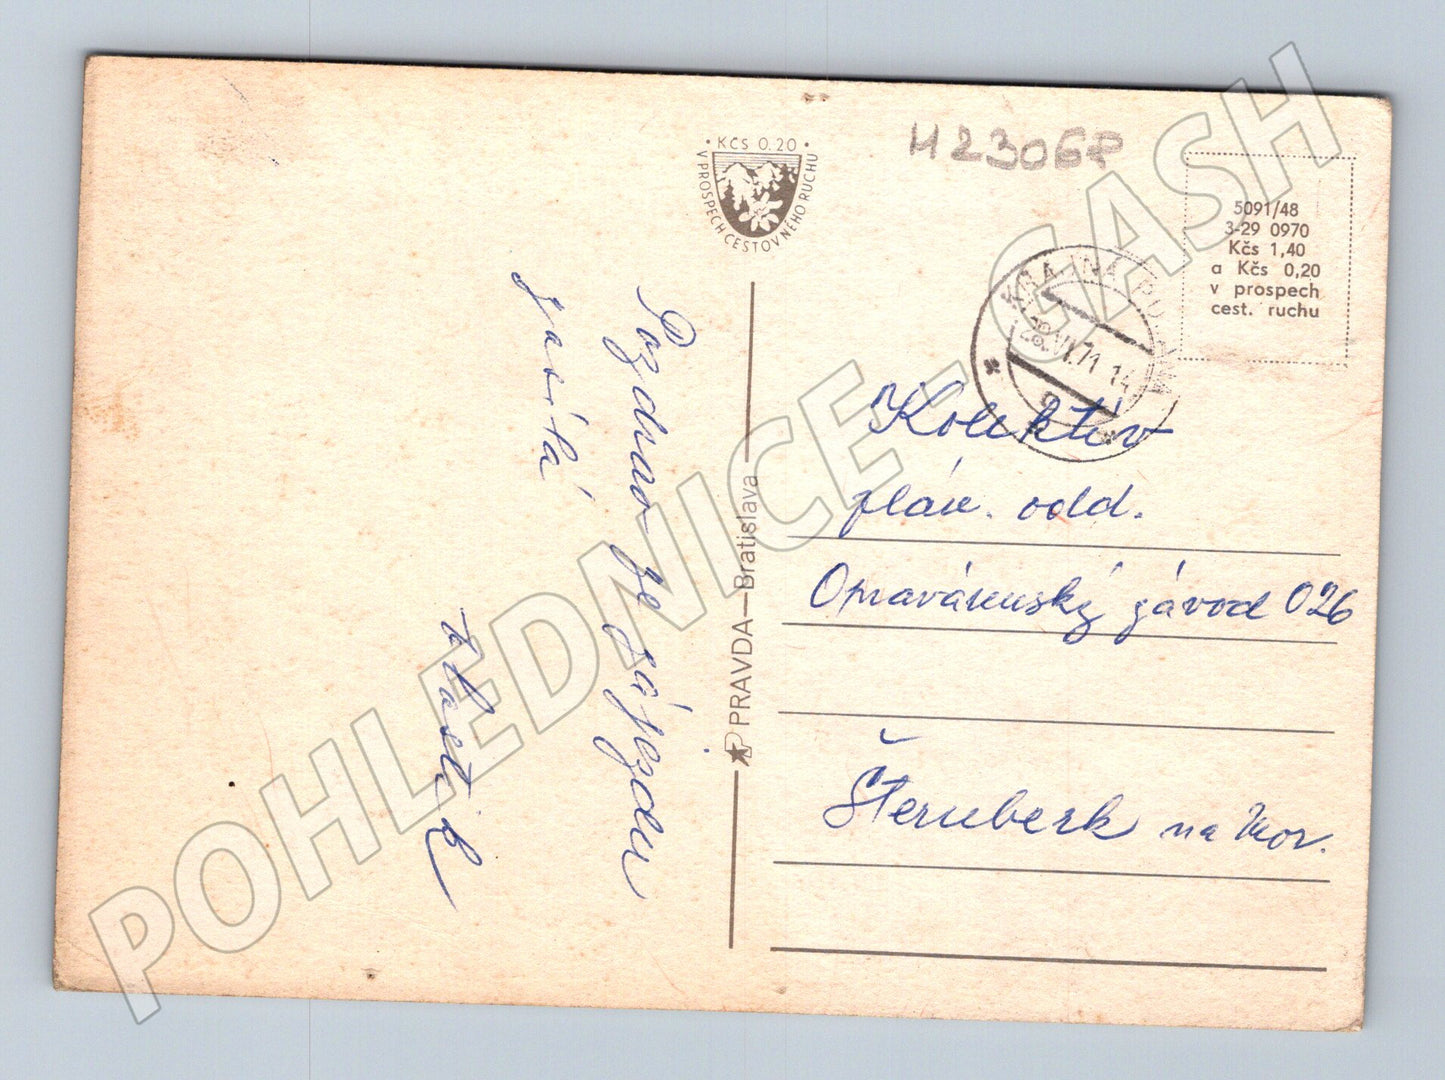 Pozdrav ze zájezdu
zasílá
Vlastík
· KČS 0.20 ·
V PROSPECH CESTOVNÉHO RUCHU
PRAVDA—Bratislava
H23068
5091/48
3-29 0970
Kčs 1,40
a Kčs 0,20
v prospech
cest. ruchu
KRAJNÁ POĽANA
28.VI.71 14
Kolektiv
plán. odd.
Opravárenský závod 026
Šternberk na Mor.
POHLEDNICE - GASH